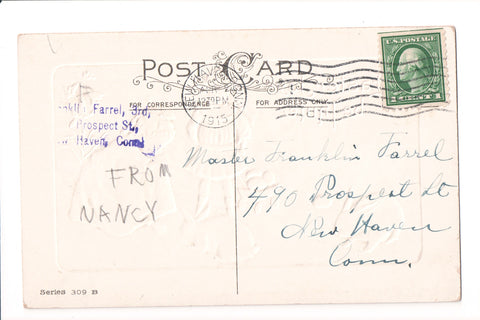 POST CARD
FOR CORRESPONDENCE
FOR ADDRESS ONLY
U.S. POSTAGE
1 CENT 1
PM
1915
Farrel, 3rd,
Prospect St.,
Haven, Conn
FROM
NANCY
Master Franklin Farrel
490 Prospect St
New Haven
Conn.
Series 309 B